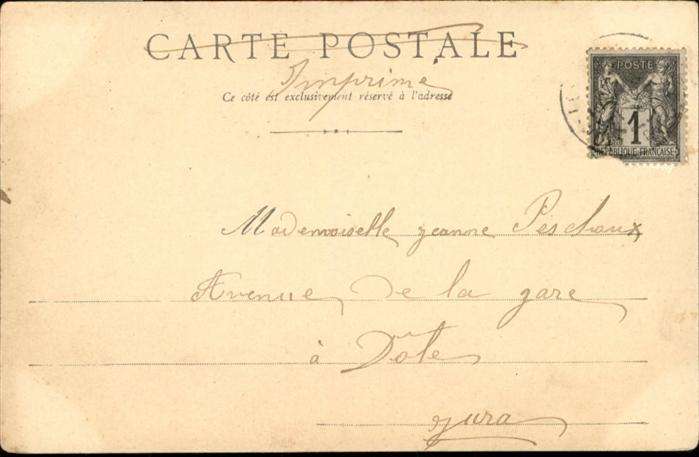 CARTE POSTALE
Imprimé
Ce côté est exclusivement réservé à l'adresse
POSTE
1
RÉPUBLIQUE FRANÇAISE
Mademoiselle Jeanne Péschaux
Avenue de la gare
à Dôle
Jura